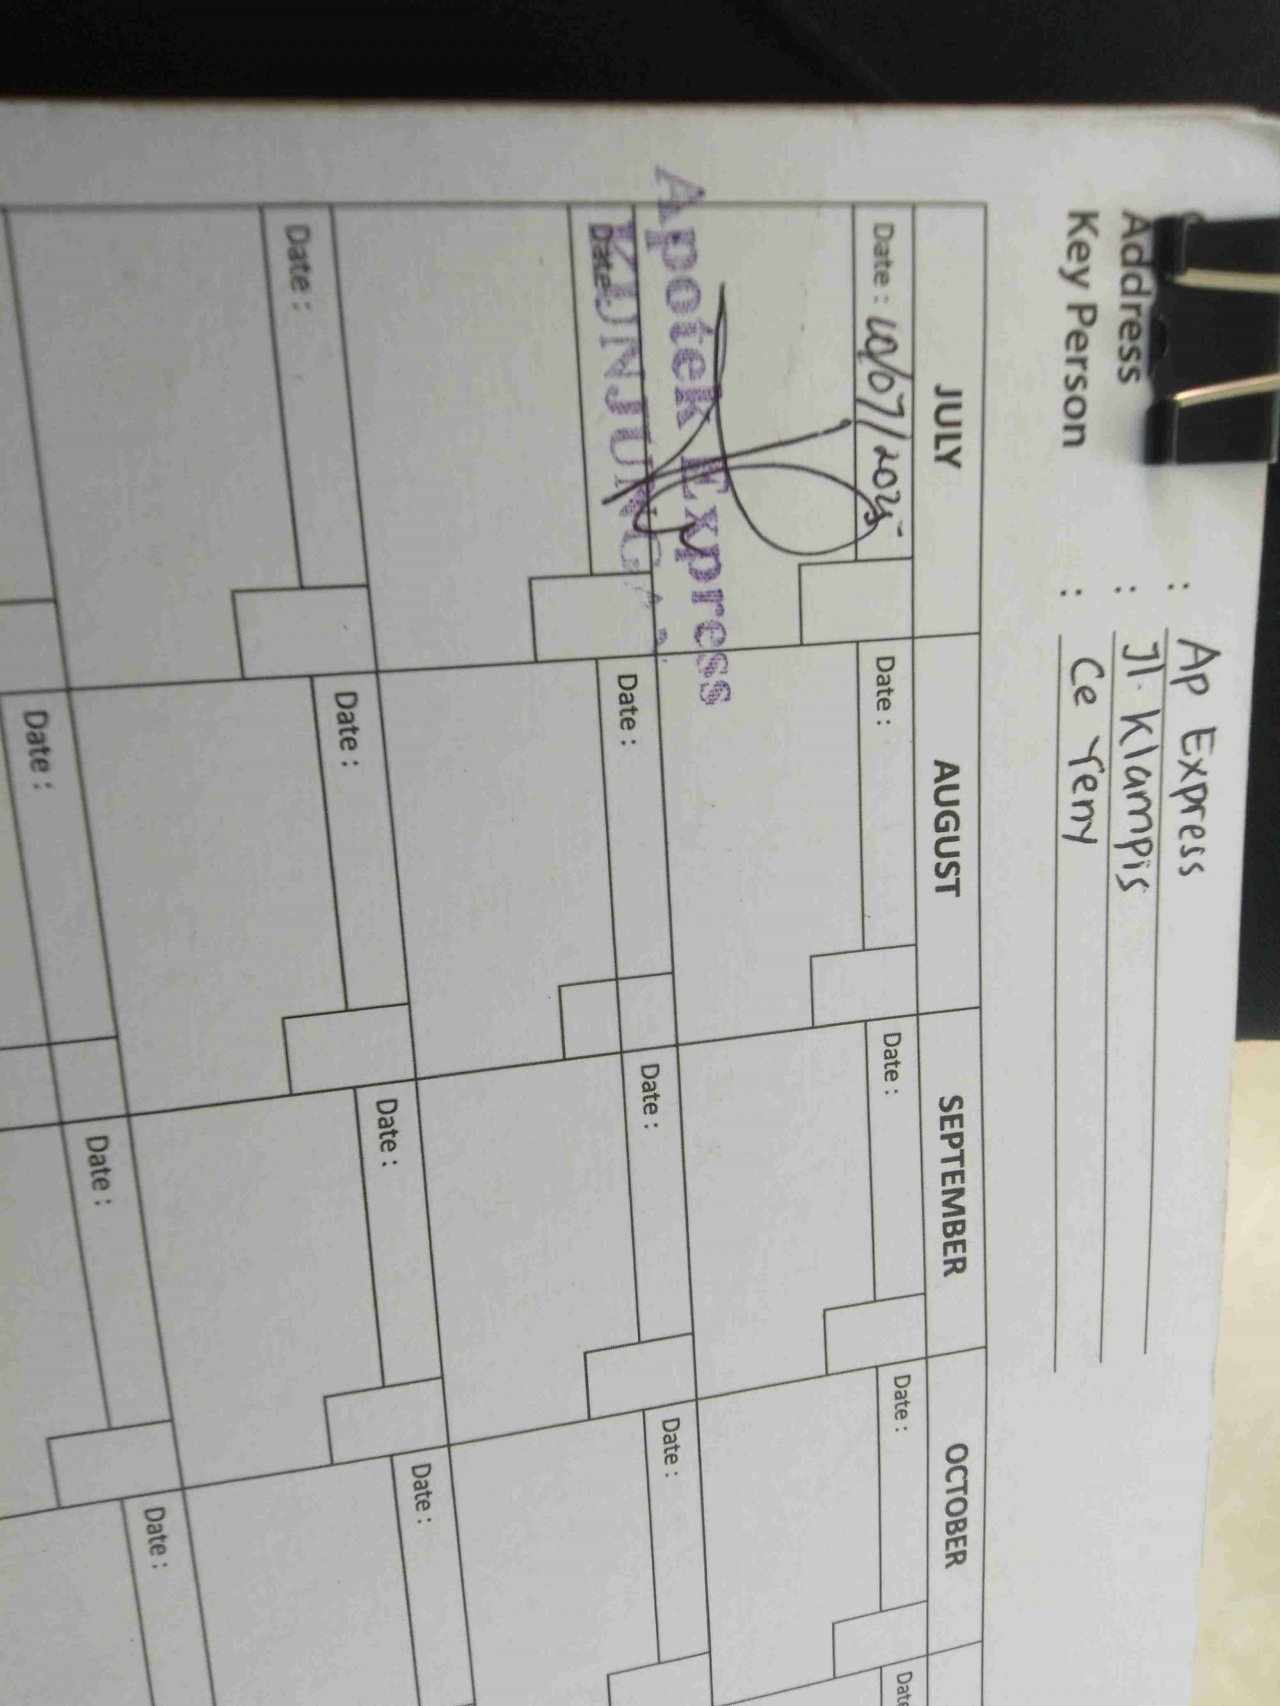 : Ap Express
Address : Jl. Klampis
Key Person : Ce Yeny
JULY AUGUST SEPTEMBER OCTOBER
Date : 10/07/2025 Date : Date : Date : Date
Apotek Express
KUNJUNGAN
Date Date : Date : Date :
Date : Date : Date : Date :
Date : Date : Date :